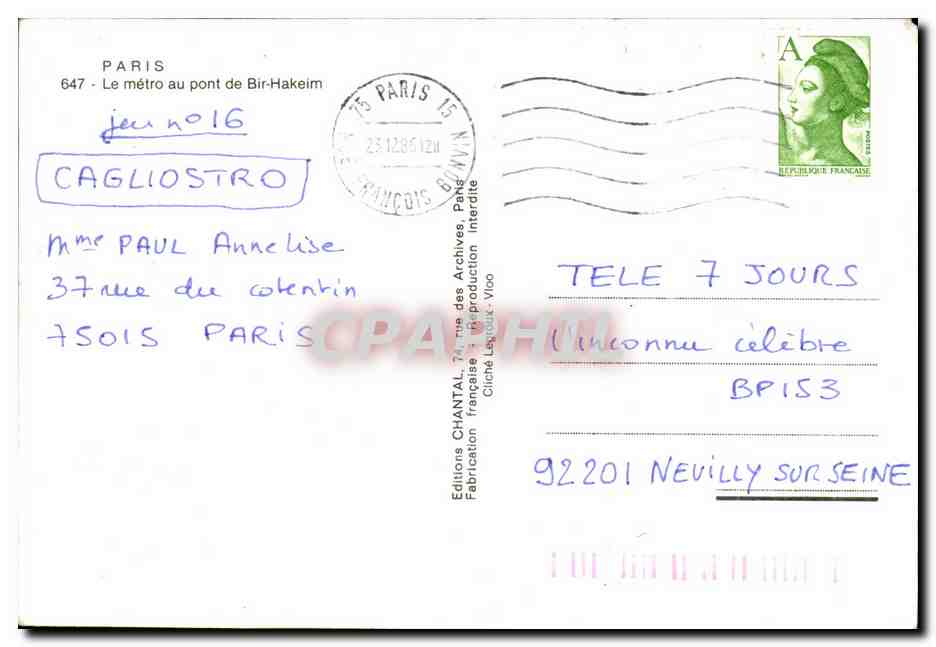 PARIS
647 - Le métro au pont de Bir-Hakeim
jeu no 16
CAGLIOSTRO
Mme PAUL Annelise
37 rue du cotentin
75015 PARIS
75 PARIS 15
23.12.86 12H
FRANÇOIS BONVIN
A
POSTES
RÉPUBLIQUE FRANÇAISE
Editions CHANTAL, 74, rue des Archives, Paris
Fabrication française - Reproduction interdite
Cliché Legroux - Vloo
TELE 7 JOURS
l'inconnu célèbre
BP153
92201 NEUILLY SUR SEINE
CPAPHIL